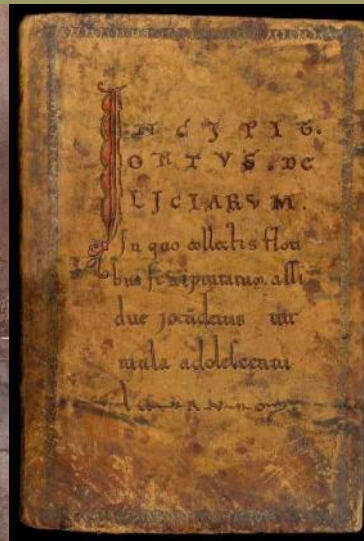 INCJPIT.
ORTVS.DE
LJCIARVM.
In quo collectis flori
bus scripturarum assi
due jocūdetur tur
mula adolescentu